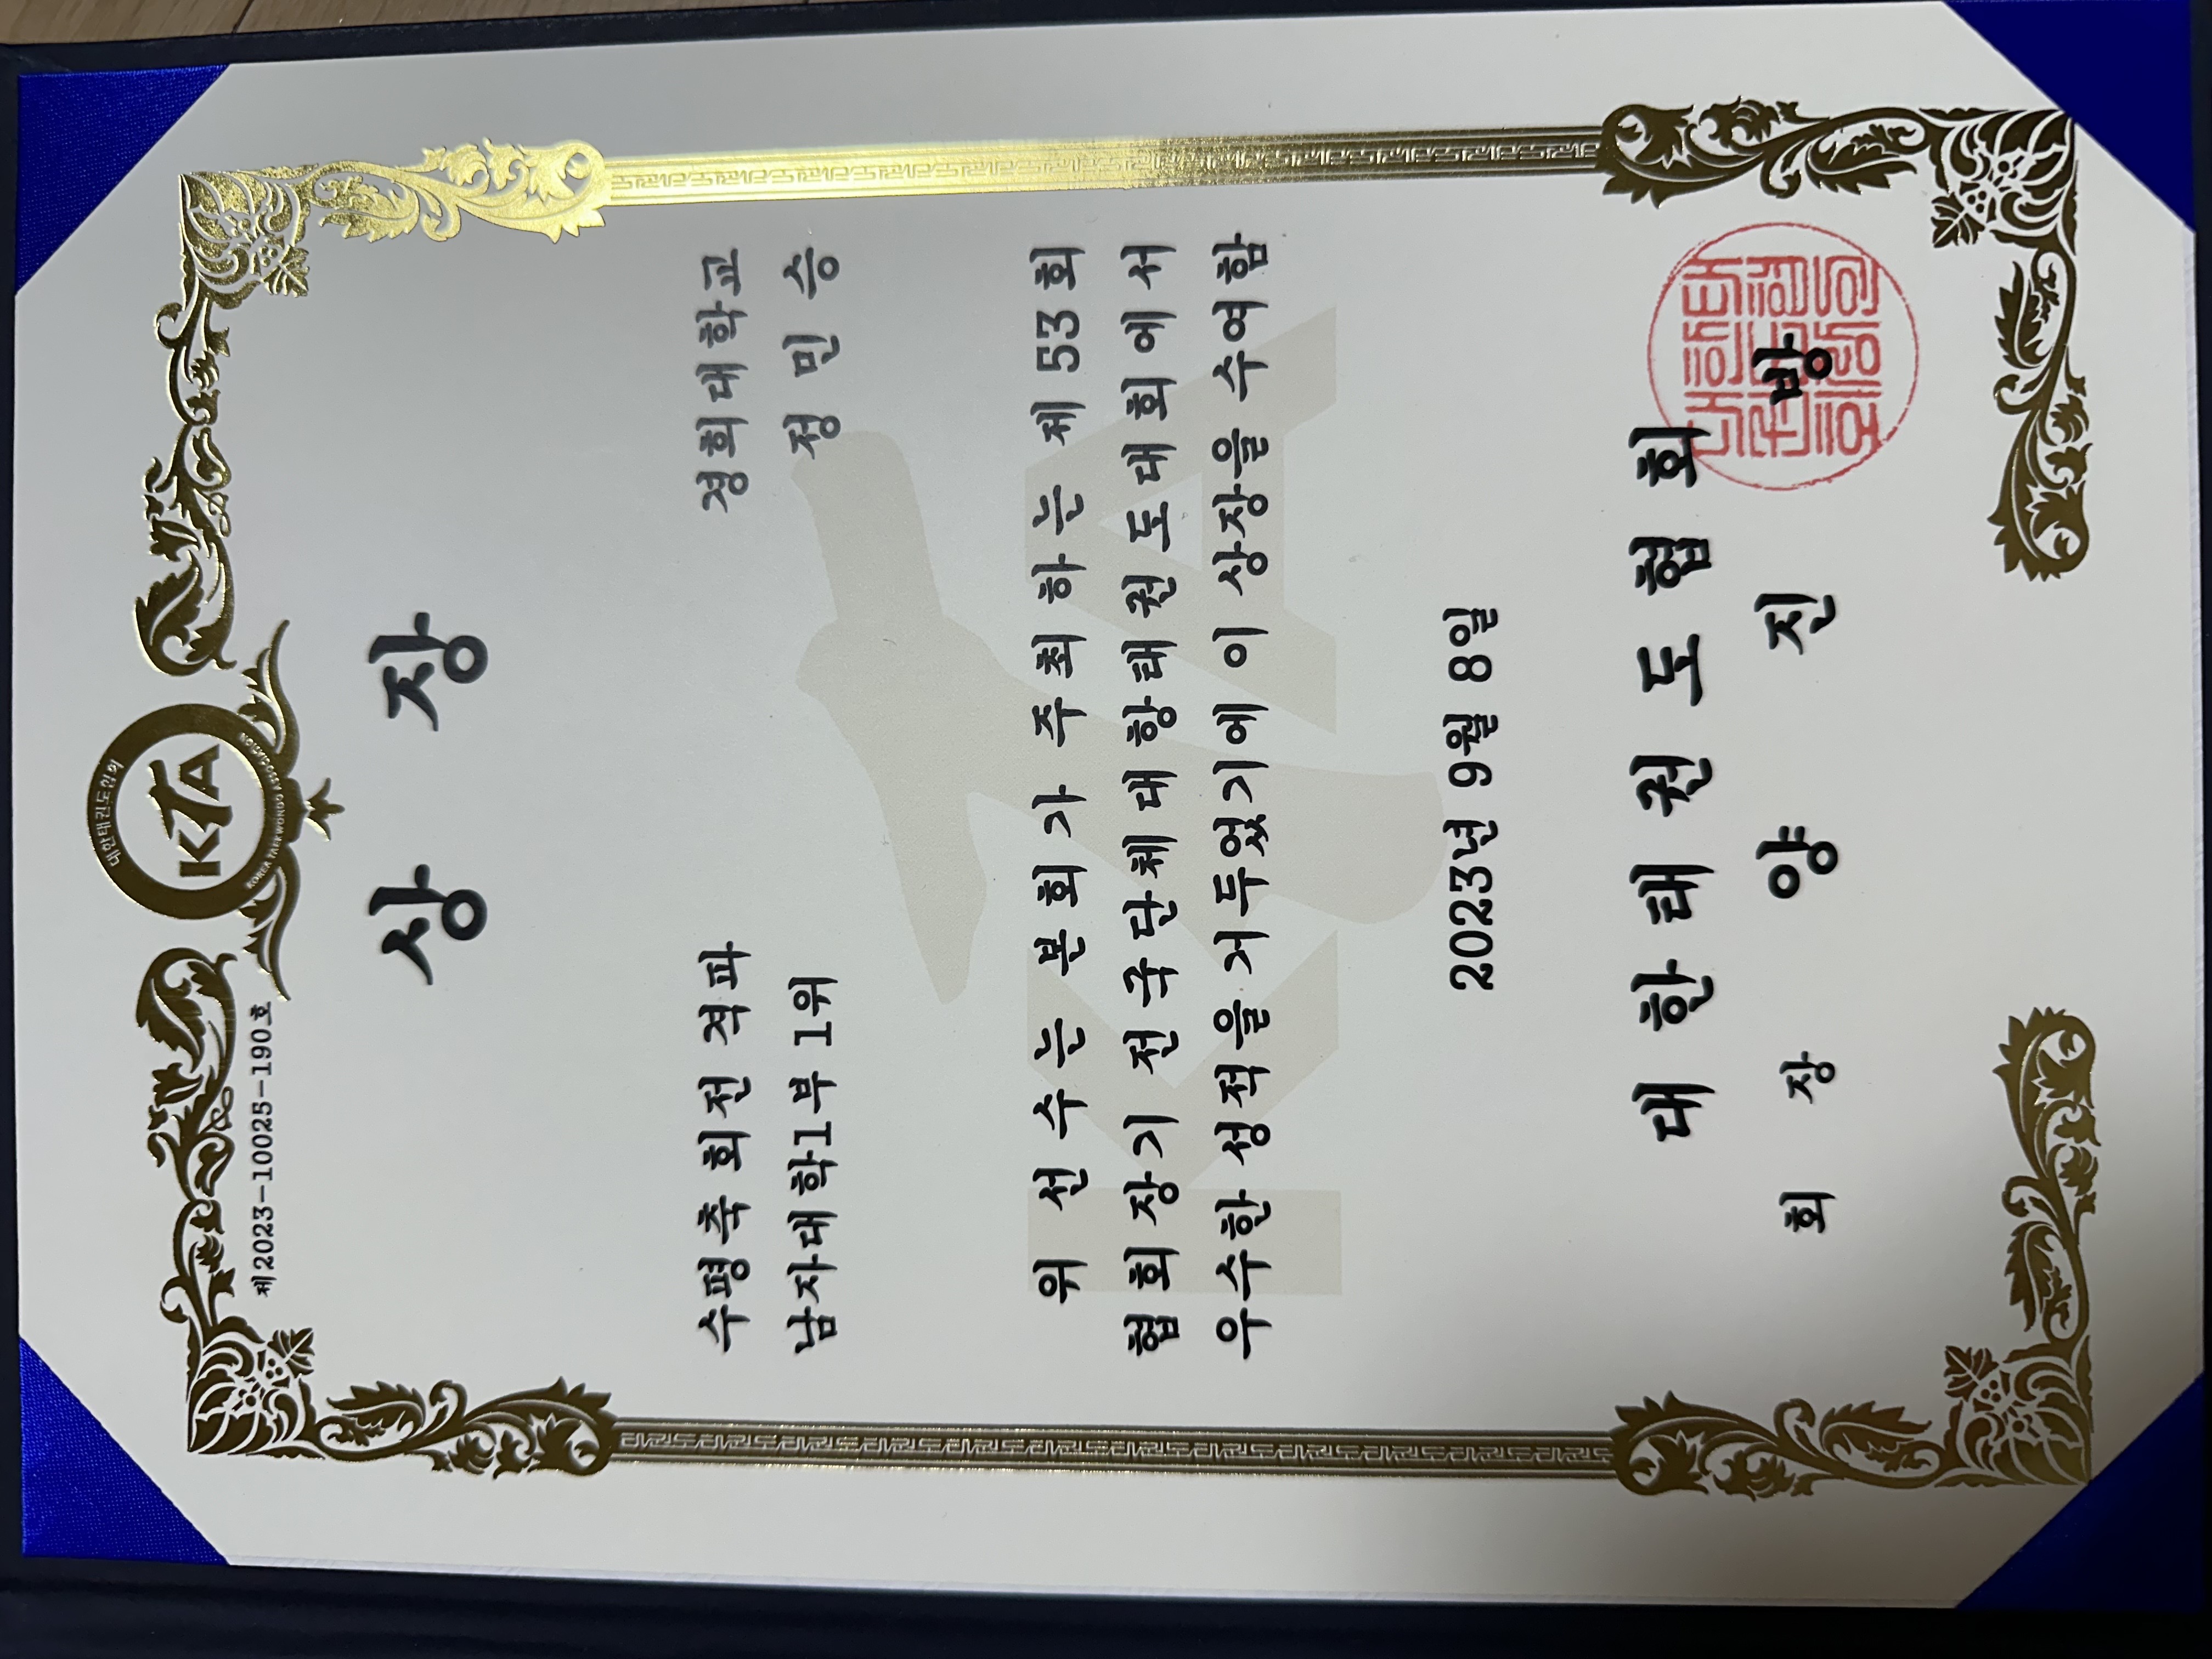 대한태권도협회
KTA
KOREA TAEKWONDO ASSOCIATION
제2023-10025-190호
상 장
수평축 회전 격파 경희대학교
남자대학1부 1위 정 민 승
위 선수는 본회가 주최하는 제53회
협회장기 전국단체대항태권도대회에서
우수한 성적을 거두었기에 이 상장을 수여함
2023년 9월 8일
대 한 태 권 도 협 회
회 장 양 진 방
KTA